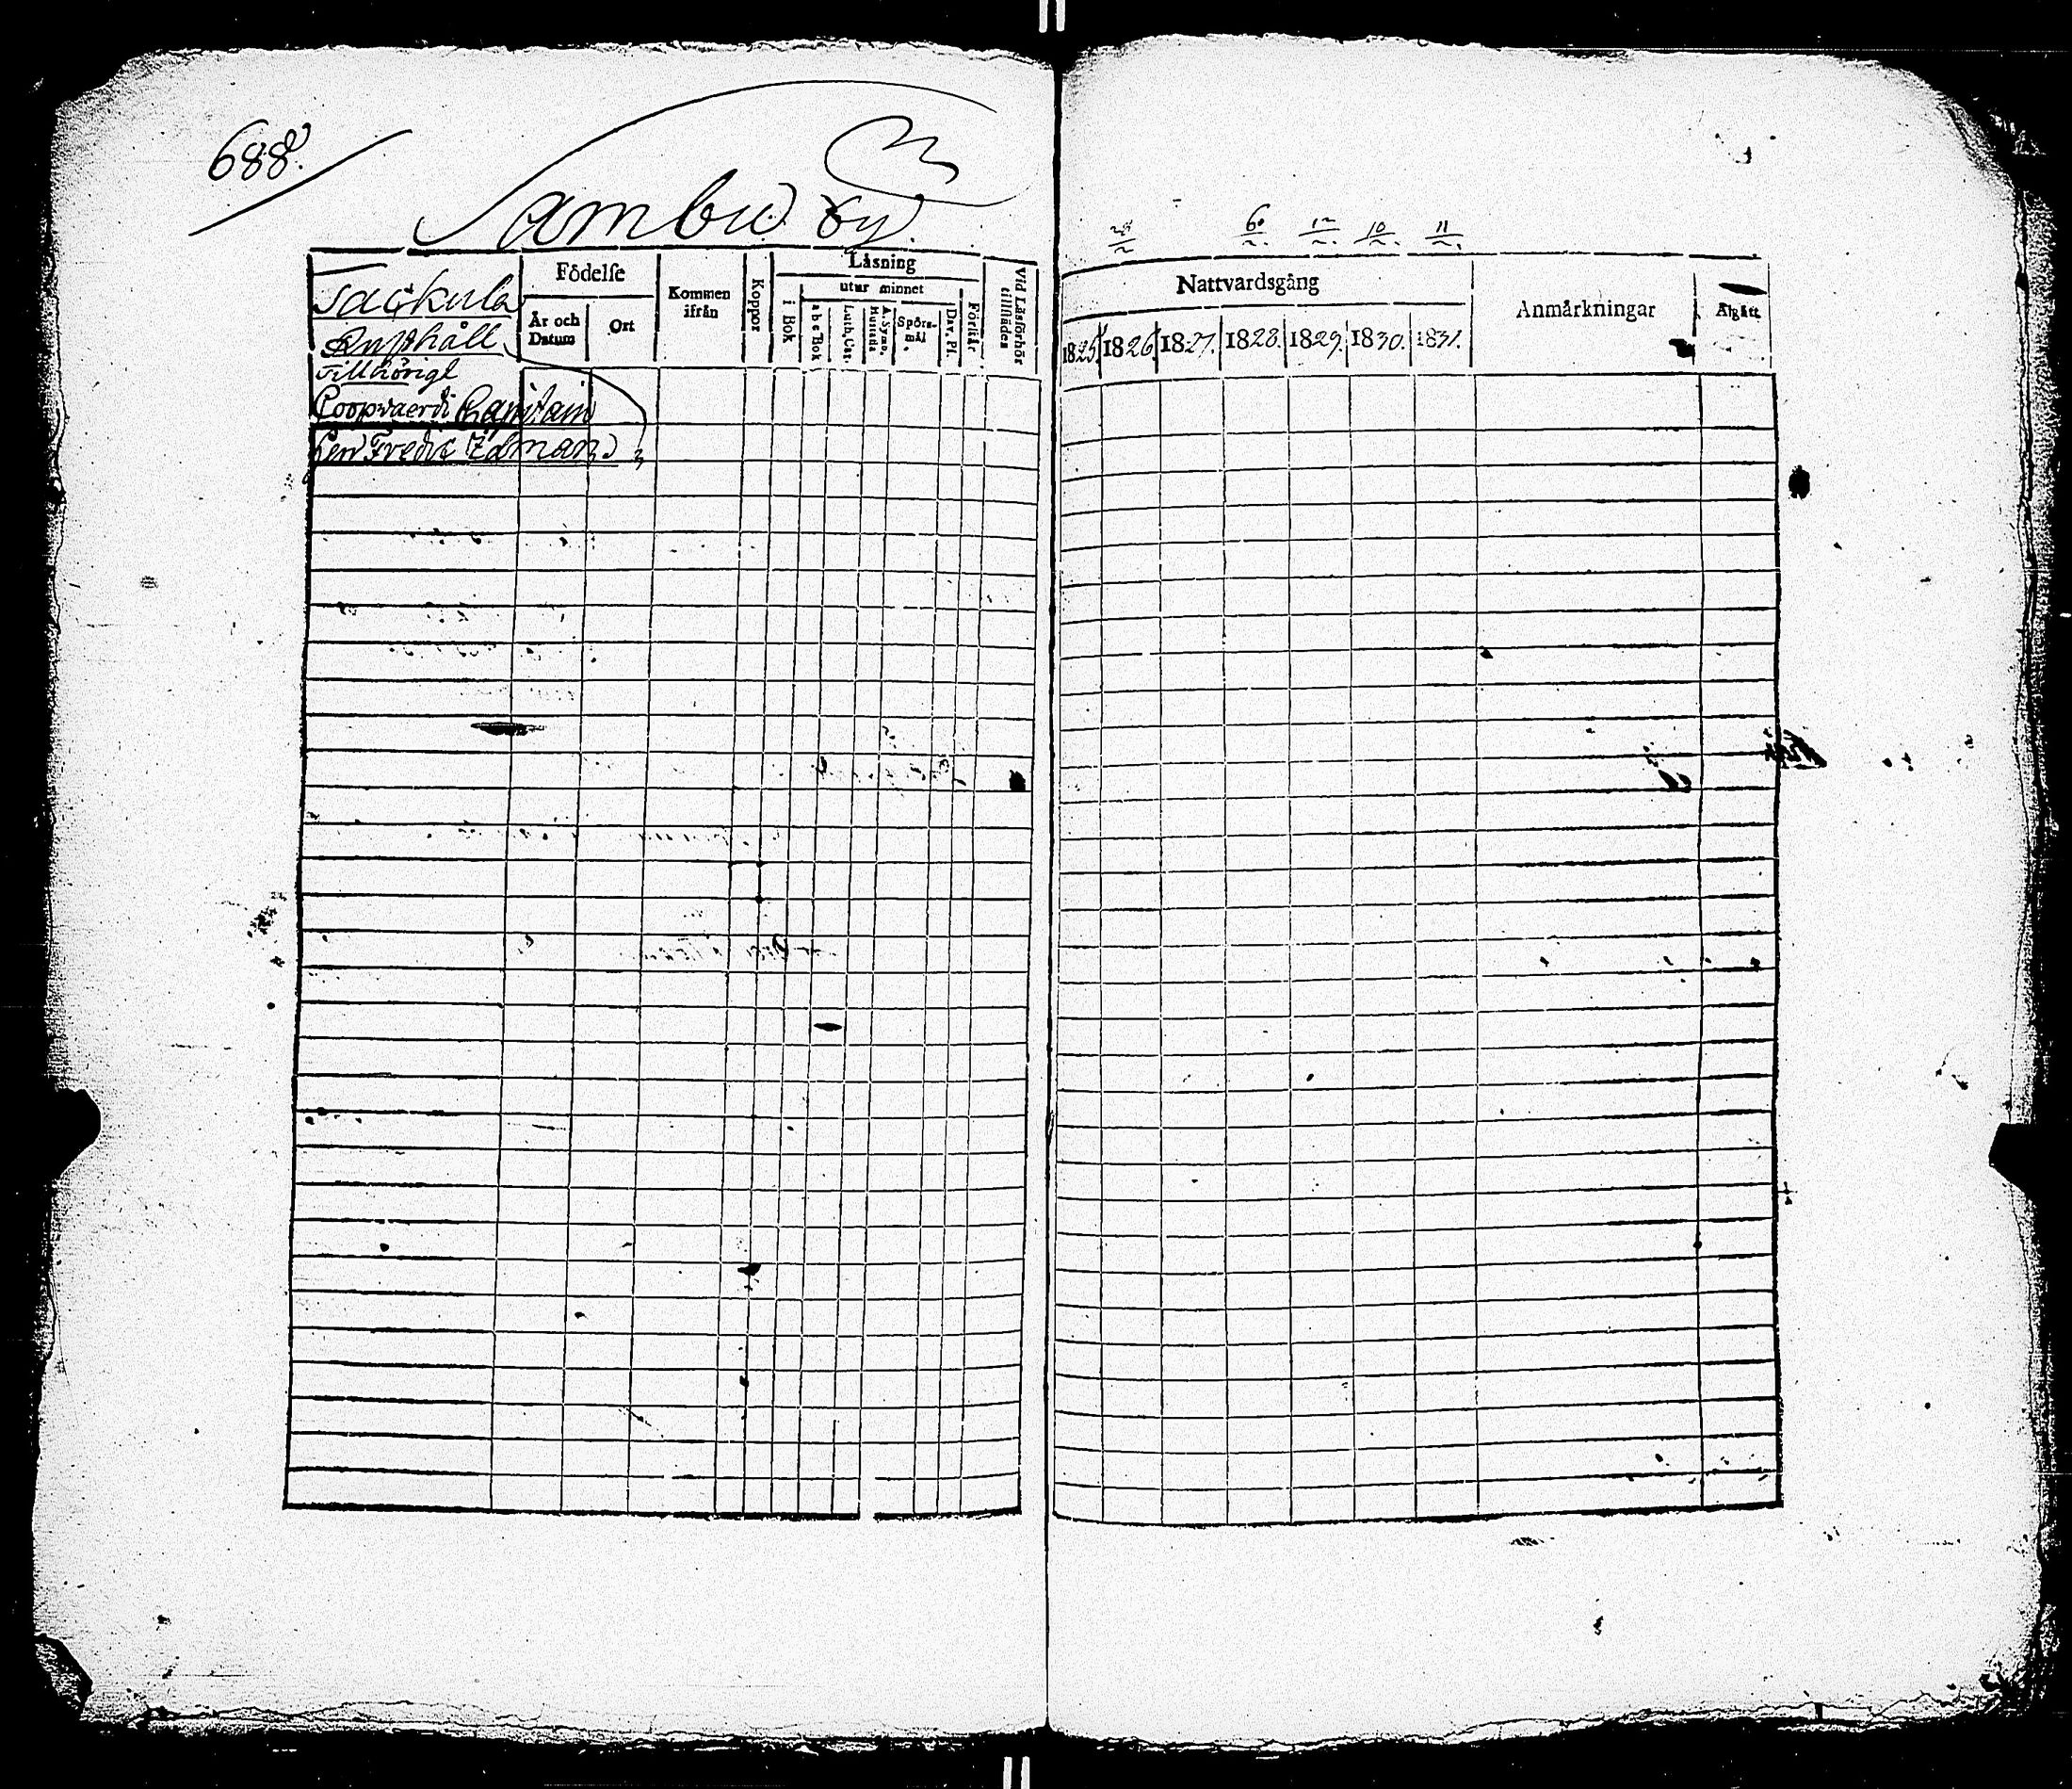 688.
Sambu by.
Tackula
Rusthåll
tillhörigt
Coopvaerdi Capitain
Fredric Edman
Födelse
År och Datum
Ort
Kommen ifrån
Koppor
Läsning
i Bok
utur minnet
a b c Bok
Luth. Cat.
A. Symb. Hustafla
Spörs-mål
Dav. Ps.
Förstår
Vid Läsförhör tillstädes
60 12 10 11
Nattvardsgång
1825. 1826. 1827. 1828. 1829. 1830. 1831.
Anmårkningar
Afgått